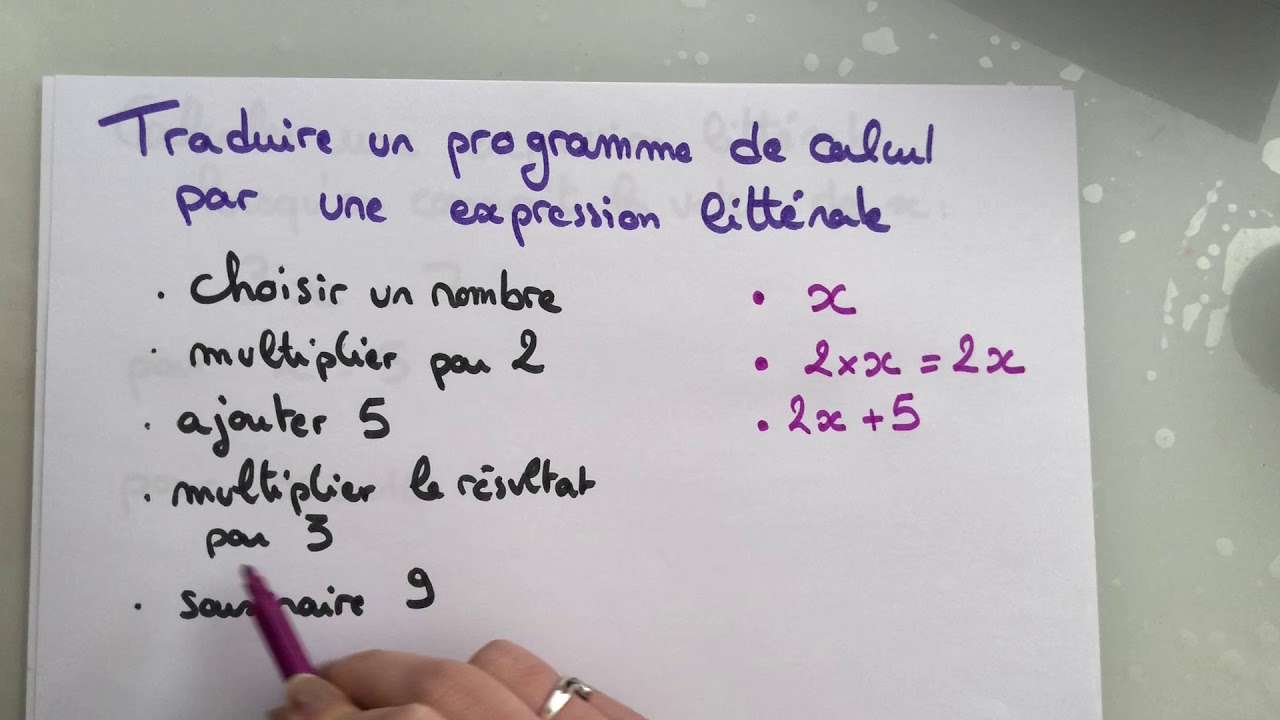 Traduire un programme de calcul
par une expression littérale
. choisir un nombre
. x
. multiplier par 2
. 2×x = 2x
. ajouter 5
. 2x + 5
. multiplier le résultat
par 3
. soustraire 9